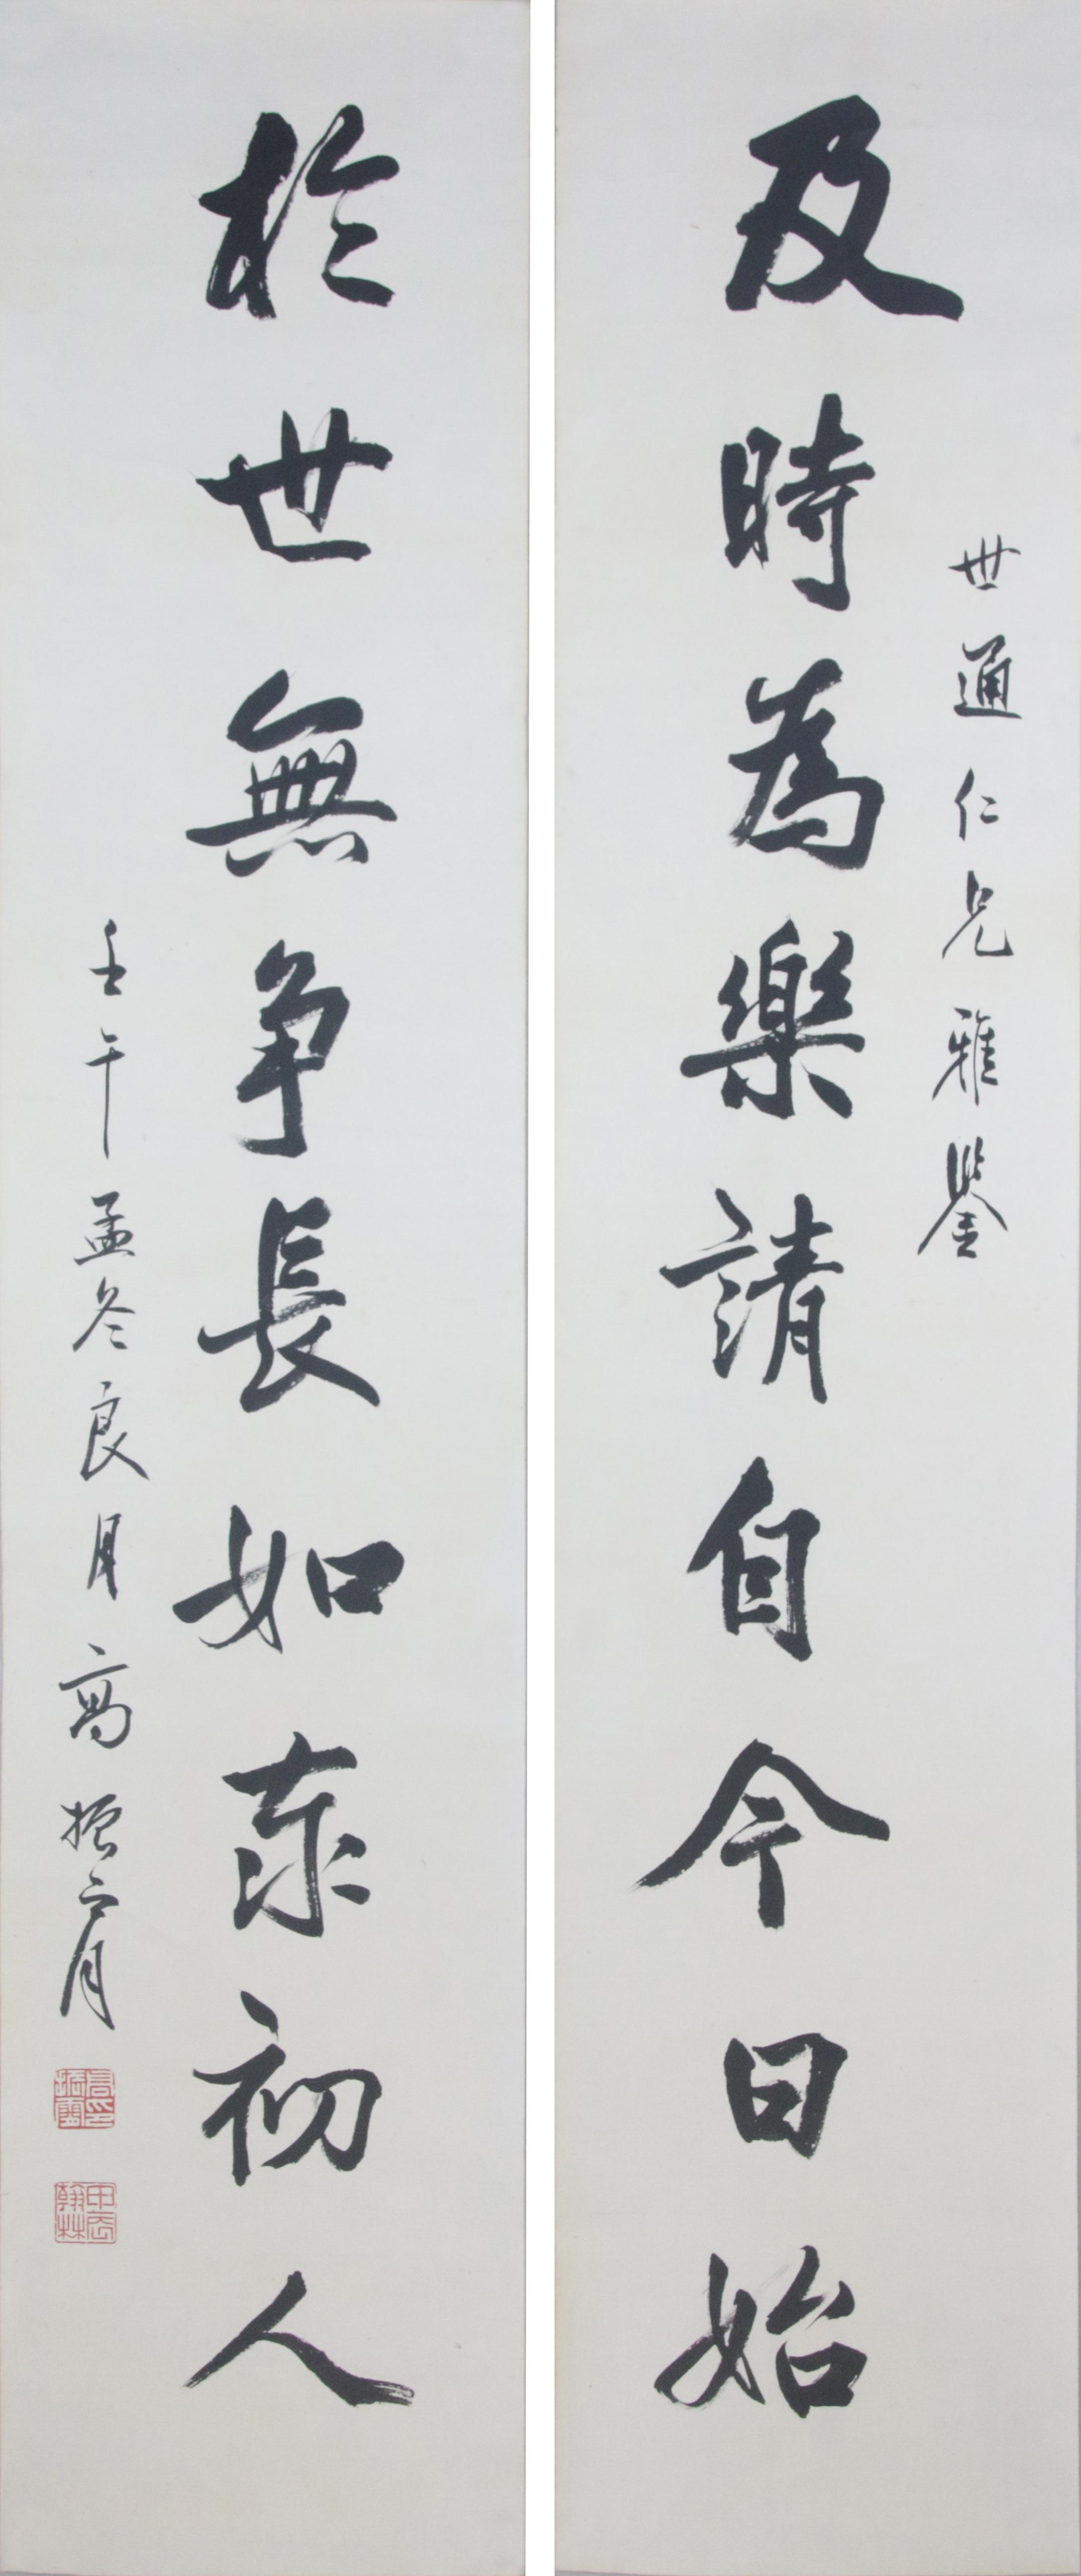 世通仁兄雅鑒
及時為樂請自今日始
於世無争長如泰初人
壬午孟冬良月高振霄
高印振霄
甲辰翰林